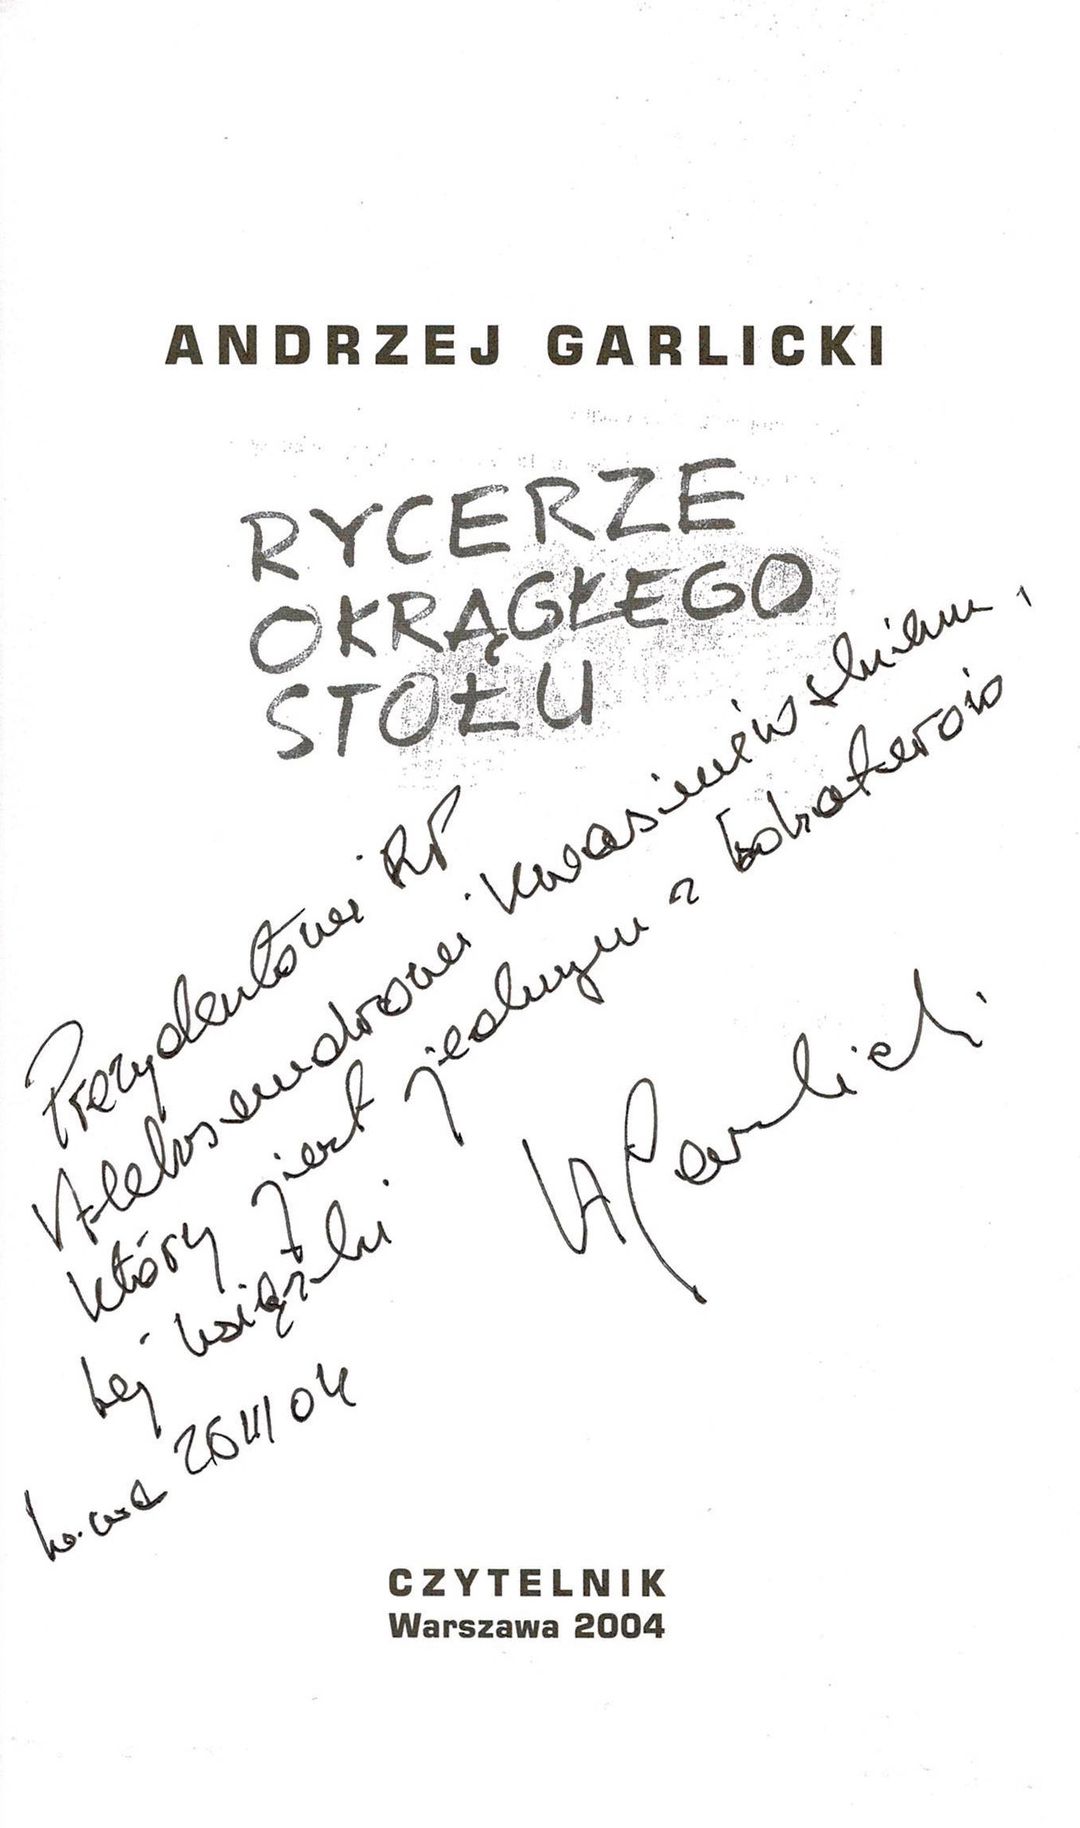 ANDRZEJ GARLICKI
RYCERZE
OKRĄGŁEGO
STOŁU
Prezydentowi RP
Aleksandrowi Kwaśniewskiemu,
który jest jednym z bohaterów
tej książki
AGarlicki
W-wa 26 III 04
CZYTELNIK
Warszawa 2004